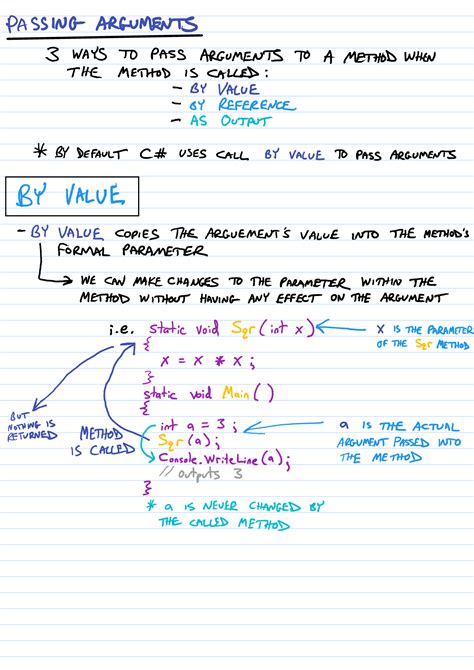 PASSING ARGUMENTS
3 WAYS TO PASS ARGUMENTS TO A METHOD WHEN
THE METHOD IS CALLED:
- BY VALUE
- BY REFERENCE
- AS OUTPUT
* BY DEFAULT C# USES CALL BY VALUE TO PASS ARGUMENTS
BY VALUE
- BY VALUE COPIES THE ARGUEMENT'S VALUE INTO THE METHOD'S
FORMAL PARAMETER
WE CAN MAKE CHANGES TO THE PARAMETER WITHIN THE
METHOD WITHOUT HAVING ANY EFFECT ON THE ARGUMENT
i.e. static void Sqr(int x)
X IS THE PARAMETER
OF THE Sqr METHOD
{
x = x * x;
}
static void Main()
{
BUT
NOTHING IS
RETURNED
METHOD
IS CALLED
int a = 3;
Sqr(a);
Console.WriteLine(a);
// outputs 3
}
a IS THE ACTUAL
ARGUMENT PASSED INTO
THE METHOD
* a IS NEVER CHANGED BY
THE CALLED METHOD